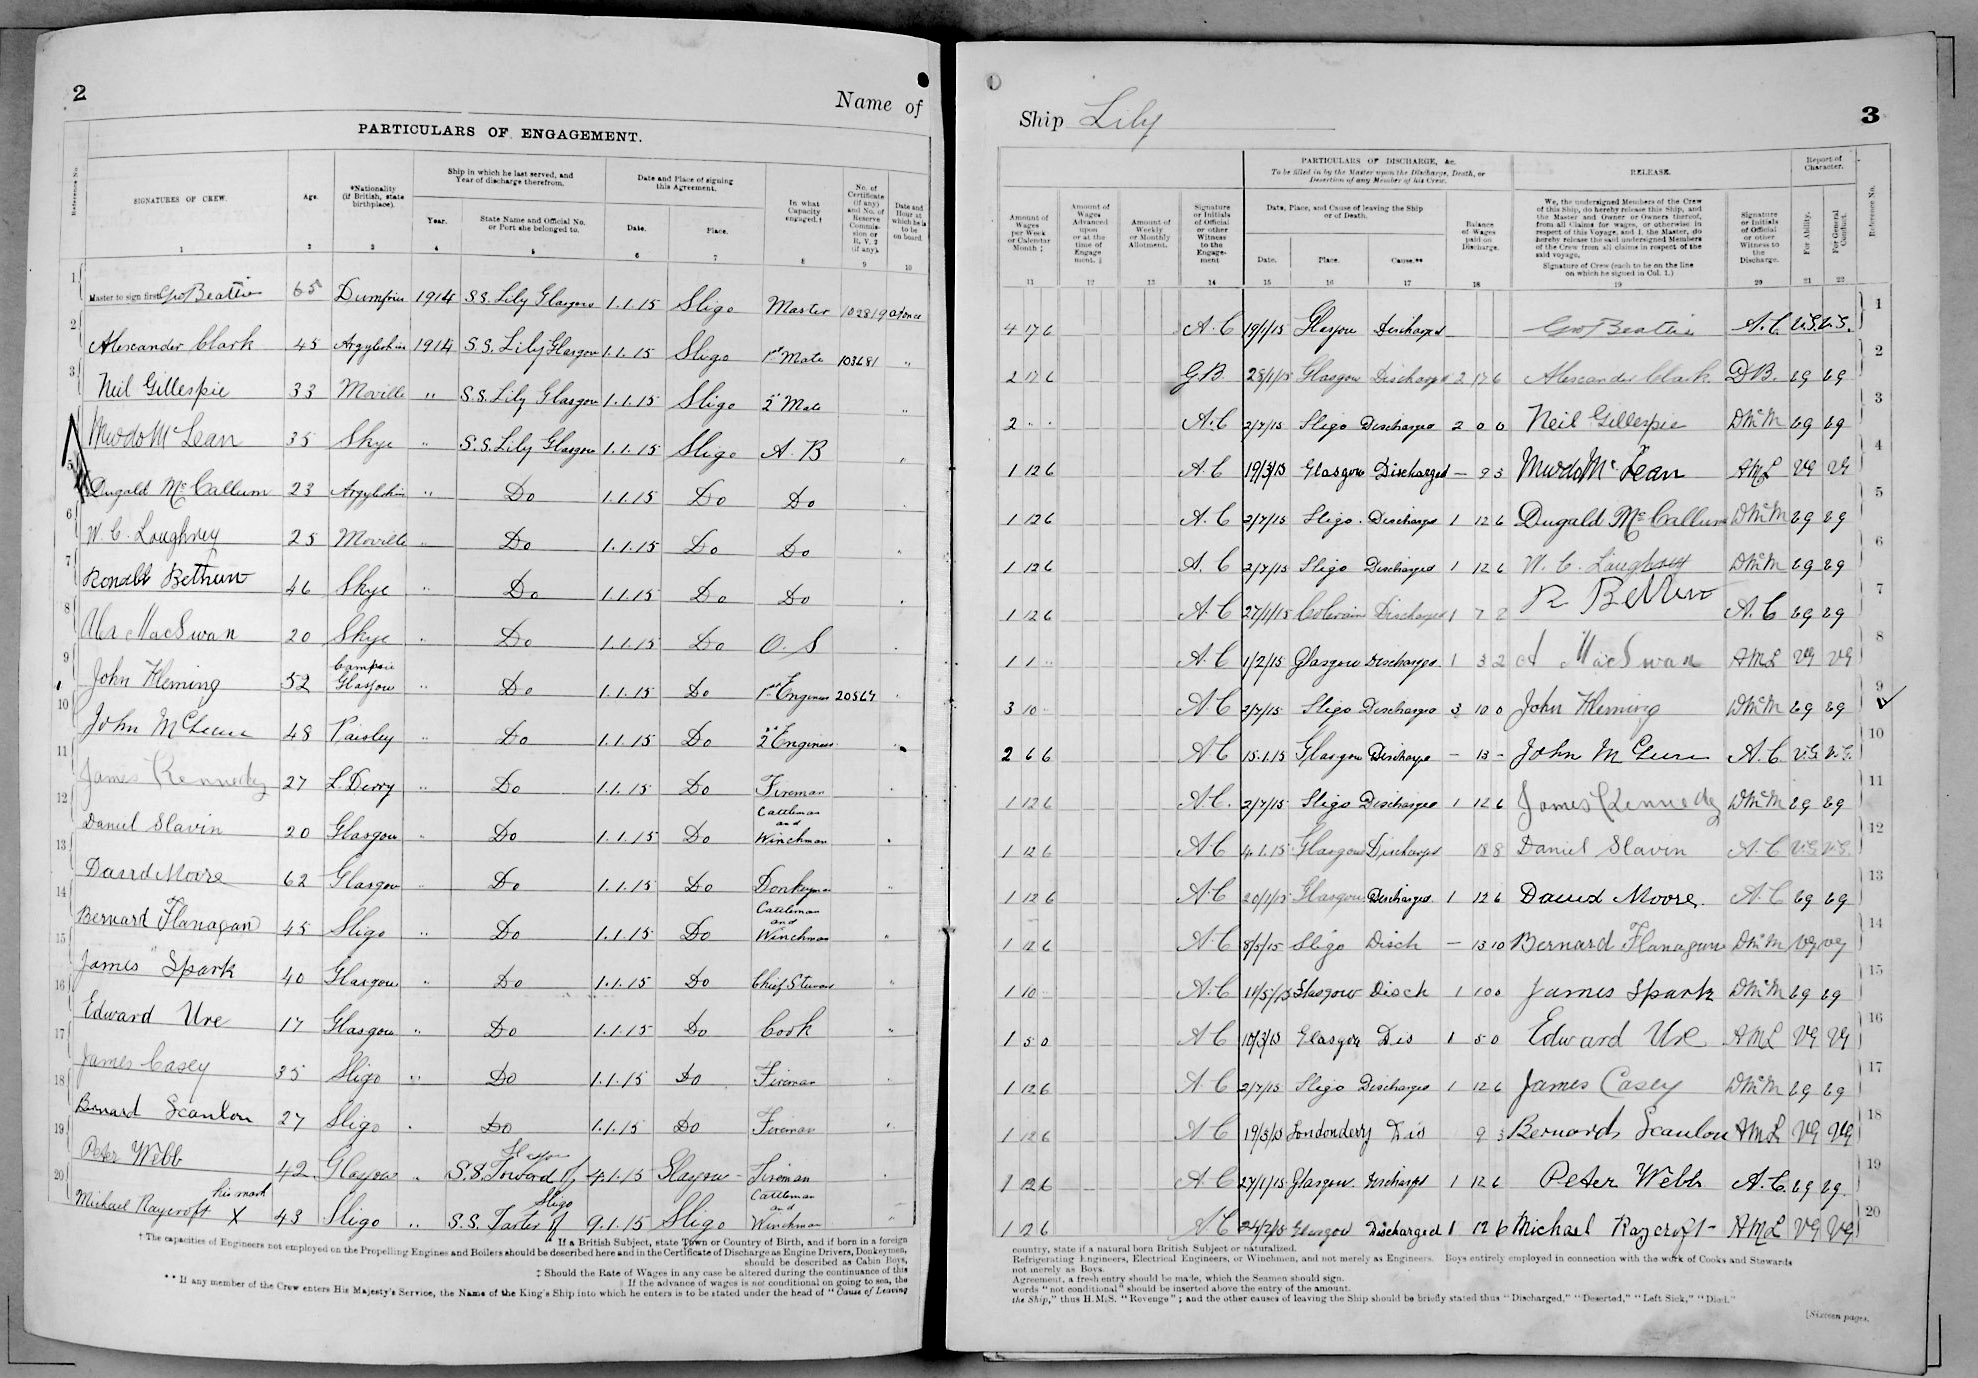 2
Name of
PARTICULARS OF ENGAGEMENT.
Reference No.
SIGNATURES OF CREW.
Age.
*Nationality (if British, state birthplace).
Ship in which he last served, and Year of discharge therefrom.
Year.
State Name and Official No. or Port she belonged to.
Date and Place of signing this Agreement.
Date.
Place.
In what Capacity engaged.†
No. of Certificate (if any) and No. of Reserve Commission or R. V. 2 (if any).
Date and Hour at which he is to be on board.
1 2 3 4 5 6 7 8 9 10
1 Master to sign first Geo Beattie 65 Dumfries 1914 S.S. Lily Glasgow 1.1.15 Sligo Master 102819 at once
2 Alexander Clark 45 Argyleshire 1914 S.S. Lily Glasgow 1.1.15 Sligo 1st Mate 103681 "
3 Neil Gillespie 33 Moville " S.S. Lily Glasgow 1.1.15 Sligo 2nd Mate "
Murdo McLean 35 Skye " S.S. Lily Glasgow 1.1.15 Sligo A. B "
5 Dugald McCallum 23 Argyleshire " Do 1.1.15 Do Do
6 W. C. Loughrey 25 Moville " Do 1.1.15 Do Do
7 Ronald Bethune 46 Skye " Do 1.1.15 Do Do
8 Alex MacSwan 20 Skye " Do 1.1.15 Do O. S
9 John Fleming 52 Campsie Glasgow " Do 1.1.15 Do 1st Engineer 20567
10 John McClure 48 Paisley " Do 1.1.15 Do 2nd Engineer
11 James Kennedy 27 L.Derry " Do 1.1.15 Do Fireman
12 Daniel Slavin 20 Glasgow " Do 1.1.15 Do Cattleman and Winchman
13 David Moore 62 Glasgow " Do 1.1.15 Do Donkeyman
14 Bernard Flanagan 45 Sligo " Do 1.1.15 Do Cattleman and Winchman
15 James Spark 40 Glasgow " Do 1.1.15 Do Chief Steward
16 Edward Ure 17 Glasgow " Do 1.1.15 Do Cook
17 James Casey 35 Sligo " Do 1.1.15 Do Fireman
18 Bernard Scanlon 27 Sligo " Do 1.1.15 Do Fireman
19 Peter Webb 42 Glasgow " S.S. Toward of Glasgow 4.1.15 Glasgow Fireman
20 Michael Raycroft his mark X 43 Sligo " S.S. Tartar of Sligo 9.1.15 Sligo Cattleman and Winchman
* If a British Subject, state Town or Country of Birth, and if born in a foreign
† The capacities of Engineers not employed on the Propelling Engines and Boilers should be described here and in the Certificate of Discharge as Engine Drivers, Donkeymen,
should be described as Cabin Boys,
‡ Should the Rate of Wages in any case be altered during the continuance of this
|| If the advance of wages is not conditional on going to sea, the
** If any member of the Crew enters His Majesty's Service, the Name of the King's Ship into which he enters is to be stated under the head of "Cause of Leaving
Ship Lily
3
Amount of Wages per Week or Calendar Month ‡
Amount of Wages Advanced upon or at the time of Engagement. ||
Amount of Weekly or Monthly Allotment.
Signature or Initials of Official or other Witness to the Engagement
PARTICULARS OF DISCHARGE, &c.
To be filled in by the Master upon the Discharge, Death, or Desertion of any Member of his Crew.
Date, Place, and Cause of leaving the Ship or of Death.
Date.
Place.
Cause.**
Balance of Wages paid on Discharge.
RELEASE.
We, the undersigned Members of the Crew of this Ship, do hereby release this Ship, and the Master and Owner or Owners thereof, from all Claims for wages, or otherwise in respect of this Voyage, and I, the Master, do hereby release the said undersigned Members of the Crew from all claims in respect of the said voyage.
Signature of Crew (each to be on the line on which he signed in Col. 1.)
Signature or Initials of Official or other Witness to the Discharge.
Report of Character.
For Ability.
For General Conduct.
Reference No.
11 12 13 14 15 16 17 18 19 20 21 22
4 17 6 A. C 19/1/15 Glasgow Discharged Geo Beattie A. C V.G. V.G. 1
2 17 6 G.B. 28/1/15 Glasgow Discharged 2 17 6 Alexander Clark D B. VG VG 2
2 " " A.C 2/7/15 Sligo Discharged 2 0 0 Neil Gillespie DMcM VG VG 3
1 12 6 A. C 19/3/15 Glasgow Discharged — 9 3 Murdo McLean AML VG VG 4
1 12 6 A. C 2/7/15 Sligo. Discharged 1 12 6 Dugald McCallum DMcM VG VG 5
1 12 6 A. C 2/7/15 Sligo Discharged 1 12 6 W. C. Loughrey DMcM VG VG 6
1 12 6 A. C 27/1/15 Colerain Discharged 1 7 2 R Bethune A. C VG VG 7
1 1 " A. C 1/2/15 Glasgow Discharged 1 3 2 A MacSwan AML VG VG 8
3 10 A. C 2/7/15 Sligo Discharged 3 10 0 John Fleming DMcM VG VG 9
2 6 6 A C 15.1.15 Glasgow Discharged — 13 — John McClure A. C V.G. V.G. 10
1 12 6 A C. 2/7/15 Sligo Discharged 1 12 6 James Kennedy DMcM VG VG 11
1 12 6 A C 4.1.15 Glasgow Discharged 18 8 Daniel Slavin A. C V.G. V.G. 12
1 12 6 A. C 20/1/15 Glasgow Discharged 1 12 6 David Moore. A. C VG VG 13
1 12 6 A. C 8/5/15 Sligo Disch — 13 10 Bernard Flanagan DMcM VG VG 14
1 10 A. C 11/5/15 Glasgow Disch 1 10 0 James Spark DMcM VG VG 15
1 5 0 A C 10/3/15 Glasgow Dis 1 5 0 Edward Ure AML VG VG 16
1 12 6 A C 2/7/15 Sligo Discharged 1 12 6 James Casey DMcM VG VG 17
1 12 6 A C 19/3/15 Londonderry Dis 9 3 Bernard Scanlon AML VG VG 18
1 12 6 A C 27/1/15 Glasgow Discharged 1 12 6 Peter Webb A. C. VG VG. 19
1 12 6 A C 24/2/15 Glasgow Discharged 1 12 6 Michael Raycroft AML VG VG 20
country, state if a natural born British Subject or naturalized.
Refrigerating Engineers, Electrical Engineers, or Winchmen, and not merely as Engineers. Boys entirely employed in connection with the work of Cooks and Stewards
not merely as Boys.
Agreement, a fresh entry should be made, which the Seamen should sign.
words "not conditional" should be inserted above the entry of the amount.
the Ship," thus H.M.S. "Revenge"; and the other causes of leaving the Ship should be briefly stated thus "Discharged," "Deserted," "Left Sick," "Died."
[Sixteen pages.